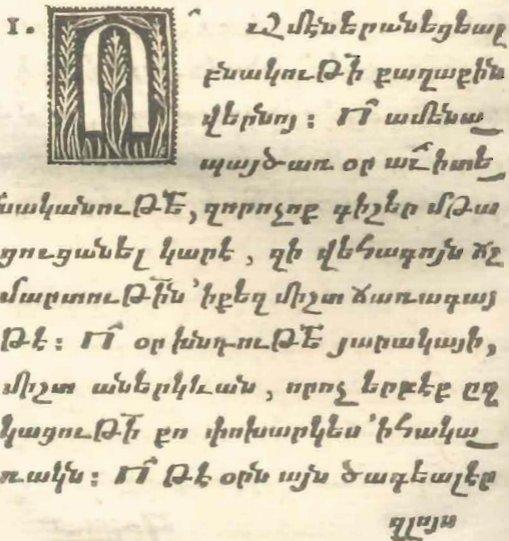 1. Ո՜ մէներանեցեալ
բնակուԹի՟ քաղաքին
վերնոյ : Ո՜ ամենա_
պայծառ օր աւ՟իտե_
նականուԹԵ՟, զորոչոք գիշեր մԹա
ցուցանել կարէ , զի վեհագոյն ճշ
մարտուԹի՟ն ՚իքեզ միշտ ճառագայ
Թէ : Ո՜ օր խնդուԹԵ՟ յարակայի,
միշտ աներկևան , որոչ երբէք ըզ
կացուԹի՟ քո փոխարկես ՚իհակա_
ռակն : Ո՜ Թէ օրն այն ծագեալէր
զլայս